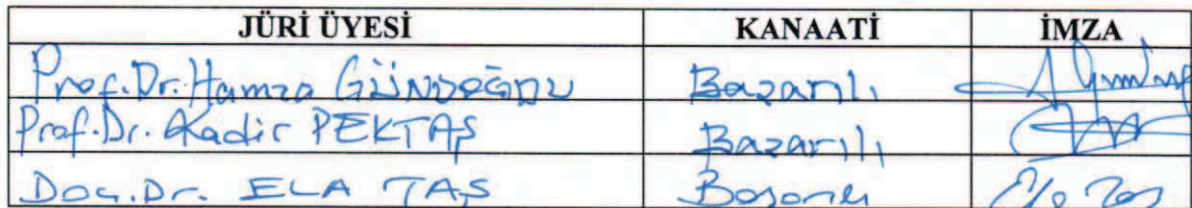 JÜRİ ÜYESİ KANAATİ İMZA
Prof.Dr. Hamza GÜNDOĞDU Başarılı
Prof.Dr. Kadir PEKTAŞ Başarılı
Doç.Dr. ELA TAŞ Başarılı Ela Taş